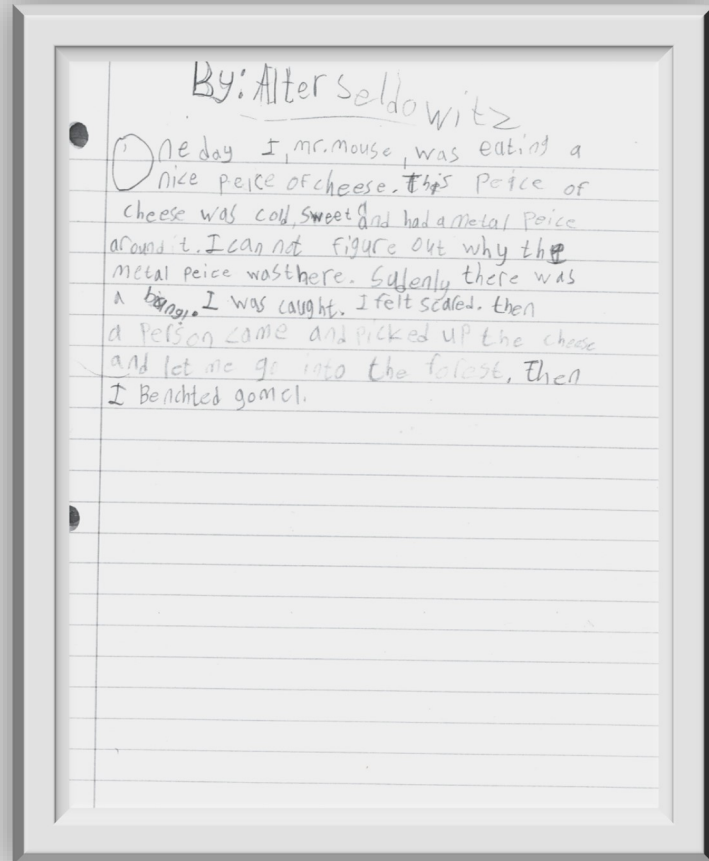 By: Alter Seldowitz
One day I, mr. mouse, was eating a
nice peice of cheese. This peice of
cheese was cold, sweet and had a metal peice
around it. I can not figure out why the
metal peice was there. Sudenly there was
a bang!. I was caught. I felt scared. then
a person came and picked up the cheese
and let me go into the forest, then
I Benchted gomel.